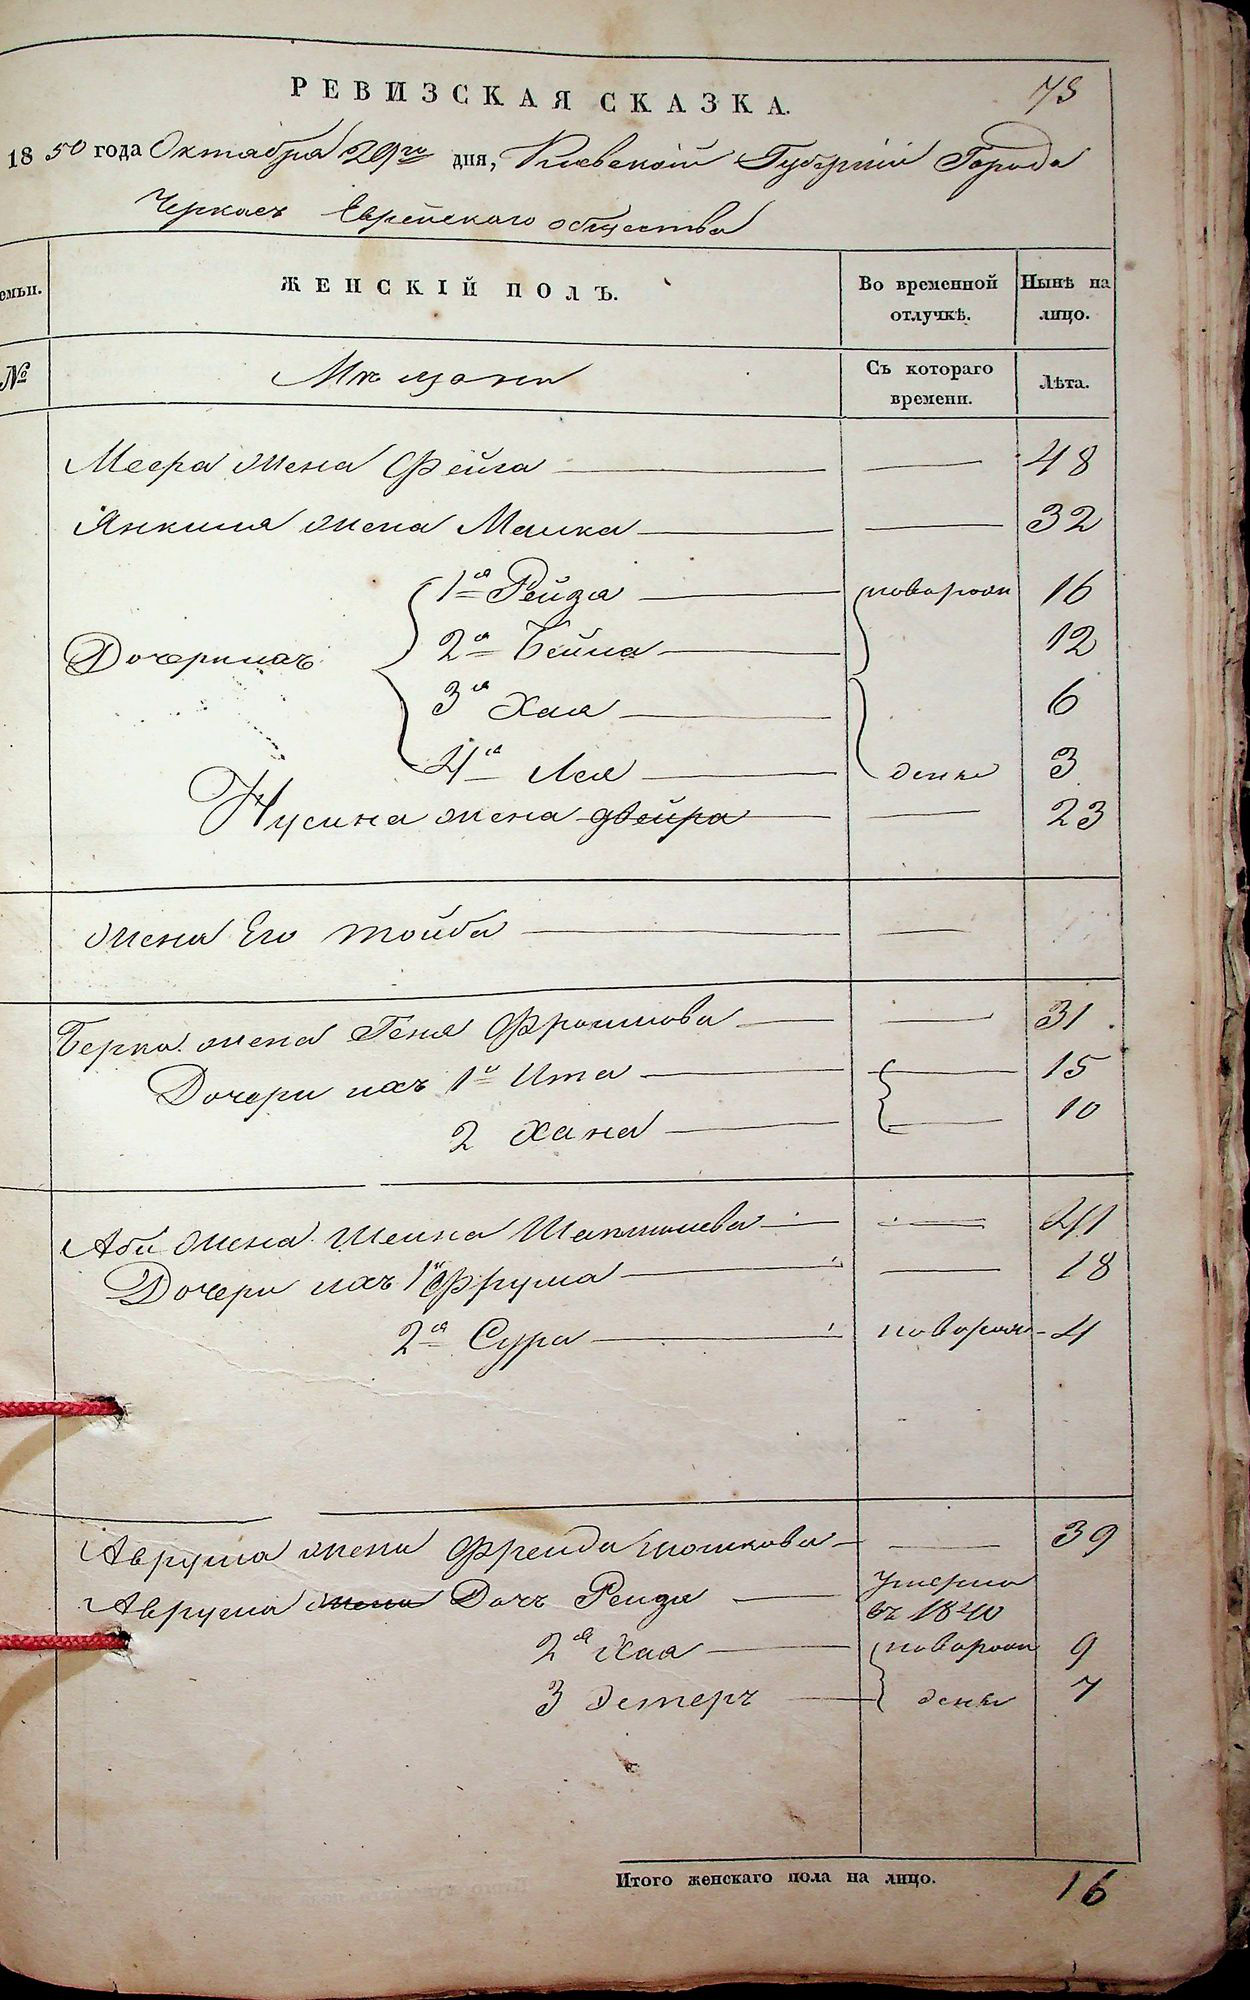 75
РЕВИЗСКАЯ СКАЗКА.
1850 года Октября 29го дня, Киевской Губерніи Города
Черкасъ Еврейского общества
емьи. ЖЕНСКІЙ ПОЛЪ. Во временной отлучкѣ. Нынѣ на лицо.
№ Мѣщане Съ котораго времени. Лѣта.
Меера жена Фейга 48
Янкиля жена Малка 32
1я Рейзя новорож 16
Дочери ихъ 2я Бейла 12
3я Хая 6
4я Лея дены 3
Нусина жена двейра 23
жена Его тойба
Берка жена Геня Фроимова 31
Дочери ихъ 1я Ита 15
2 Хана 10
Аби жена Шейна 41
Дочери ихъ 1я Фрума 18
2я Сура новорож 4
Аврума жена Фрейда Іошкова 39
Аврума жена Дочь Рейзя Умерла въ 1840
2я Хая новорож 9
3 Эстеръ дены 7
Итого женскаго пола на лицо. 16